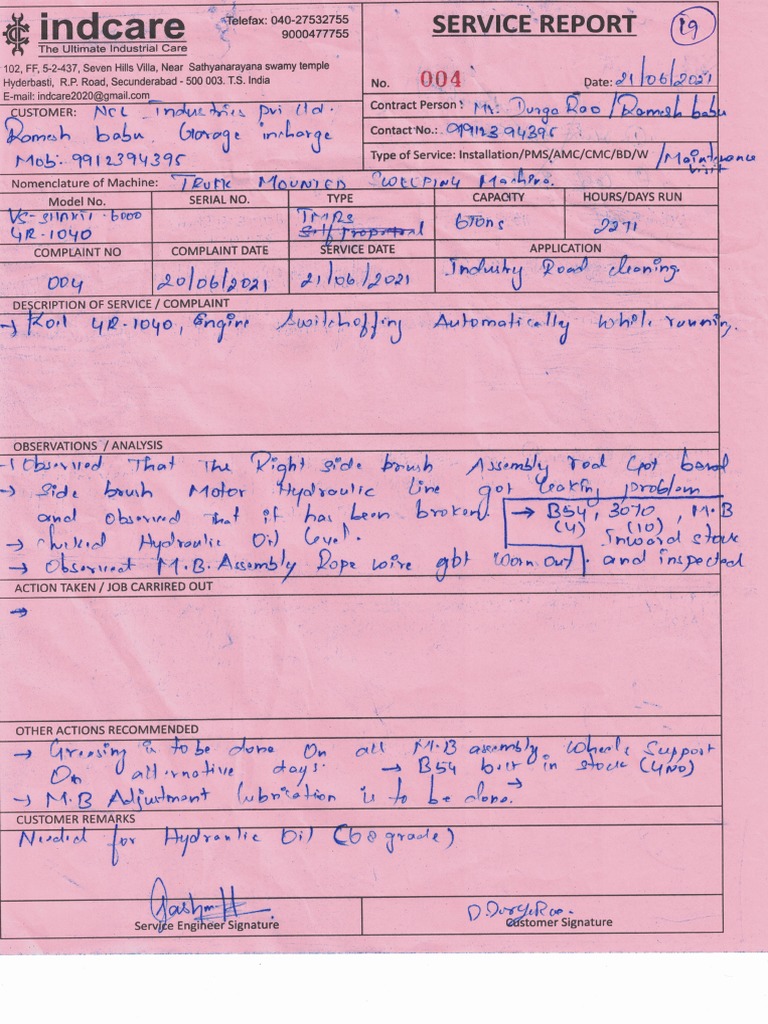 indcare
The Ultimate Industrial Care
Telefax: 040-27532755
9000477755
102, FF, 5-2-437, Seven Hills Villa, Near Sathyanarayana swamy temple
Hyderbasti, R.P. Road, Secunderabad - 500 003. T.S. India
E-mail: indcare2020@gmail.com
SERVICE REPORT
19
No. 004 Date: 21/06/2021
CUSTOMER: NCL Industries pvi ltd.
Ramesh babu Garage incharge
Mob:- 9912394395
Contract Person: Mr. Durga Rao / Ramesh babu
Contact No.: 9912394395
Type of Service: Installation/PMS/AMC/CMC/BD/W / Maintenance visit
Nomenclature of Machine: TRUCK MOUNTED SWEEPING Machine.
Model No. SERIAL NO. TYPE CAPACITY HOURS/DAYS RUN
6000 TMRS 6Tons 2271
4R-1040
COMPLAINT NO COMPLAINT DATE SERVICE DATE APPLICATION
004 20/06/2021 21/06/2021 Industry Road cleaning.
DESCRIPTION OF SERVICE / COMPLAINT
→ Koel 4R-1040, Engine Switchoffing Automatically while running.
OBSERVATIONS / ANALYSIS
→ Observed That The Right side brush Assembly rod Got band
→ Side brush Motor Hydraulic Line got leaking problem
and observed that it has been broken. → B54, 3070, M.B
(4) (10) Inward stock
→ Checked Hydraulic Oil level.
→ Observed M.B. Assembly Rope wire got worn out. and inspected
ACTION TAKEN / JOB CARRIRED OUT
→
OTHER ACTIONS RECOMMENDED
→ Greasing is to be done On all M.B assembly wheels Support
On alternative days. → B54 belt in stock (4NO)
→ M.B Adjustment lubrication is to be done.→
CUSTOMER REMARKS
Needed for Hydraulic Oil (68 grade)
D. Durga Rao.
Service Engineer Signature Customer Signature